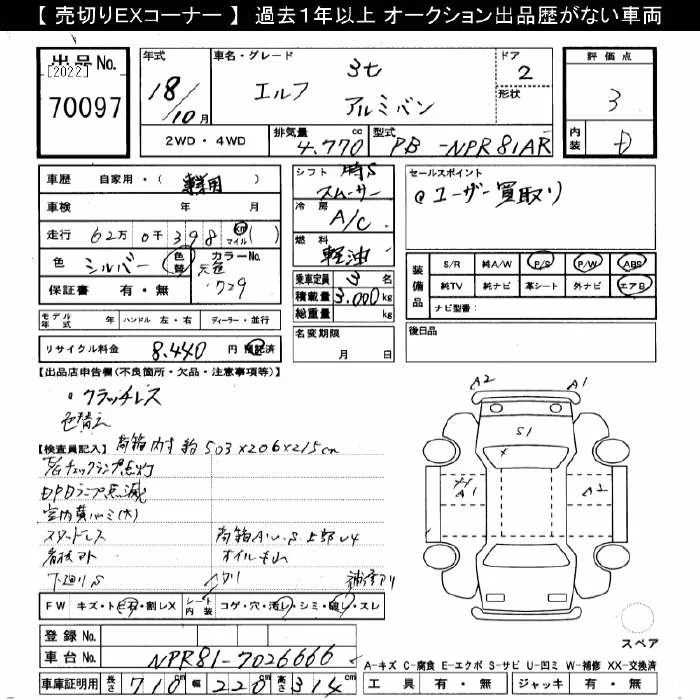 【 売切りEXコーナー 】 過去１年以上 オークション出品歴がない車両
出品No.
[2022]
70097
年式
18/10月
車名・グレード
3t
エルフ
アルミバン
ドア
2
形状
評価点
3
内装
D
2WD・4WD
排気量
4.770 cc
型式
PB-NPR81AR
車歴 自家用・(事業用)
車検 年 月
走行 62万0千398 km マイル ( )
色 シルバー 色替 カラーNo. 元色 729
保証書 有・無
シフト
スムーサー
冷房
A/C
燃料
軽油
乗車定員 3 名
積載量 3.000 kg
総重量 kg
セールスポイント
ユーザー買取り
装備品
S/R 純A/W P/S P/W ABS
純TV 純ナビ 革シート 外ナビ エアB
ナビ型番:
モデル年式 年 ハンドル 左・右 ディーラー・並行
名変期限
月 日
後日品
リサイクル料金 8.440 円 預託済
【出品店申告欄(不良箇所・欠品・注意事項等)】
・クラッチレス
色替え
【検査員記入】 荷箱内寸約503×206×215cm
E/Gチェックランプ点灯
DPDランプ点滅
室内黄バミ(大)
スタッドレス
荷箱A.U.S 上部U4
オイルモレ
下廻りS
補修アリ
FW キズ・トビ石・割レX シート内装 コゲ・穴・汚レ・シミ・破レ・スレ
登録No.
車台No. NPR81-7026666
車庫証明用 長さ 710 cm 幅 220 cm 高さ 314 cm
A2
A1
S1
×
A1
A2
スペア
A-キズ C-腐食 E-エクボ S-サビ U-凹ミ W-補修 XX-交換済
工具 有・無 ジャッキ 有・無